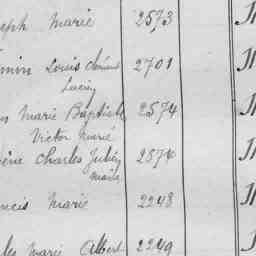 eph Marie 2573
min Louis Clément 2701
Lucien
n Marie Baptiste 2574
Victor Marie
ène Charles Julien 2874
Marie
ncis Marie 2248
les Marie Albert 2249